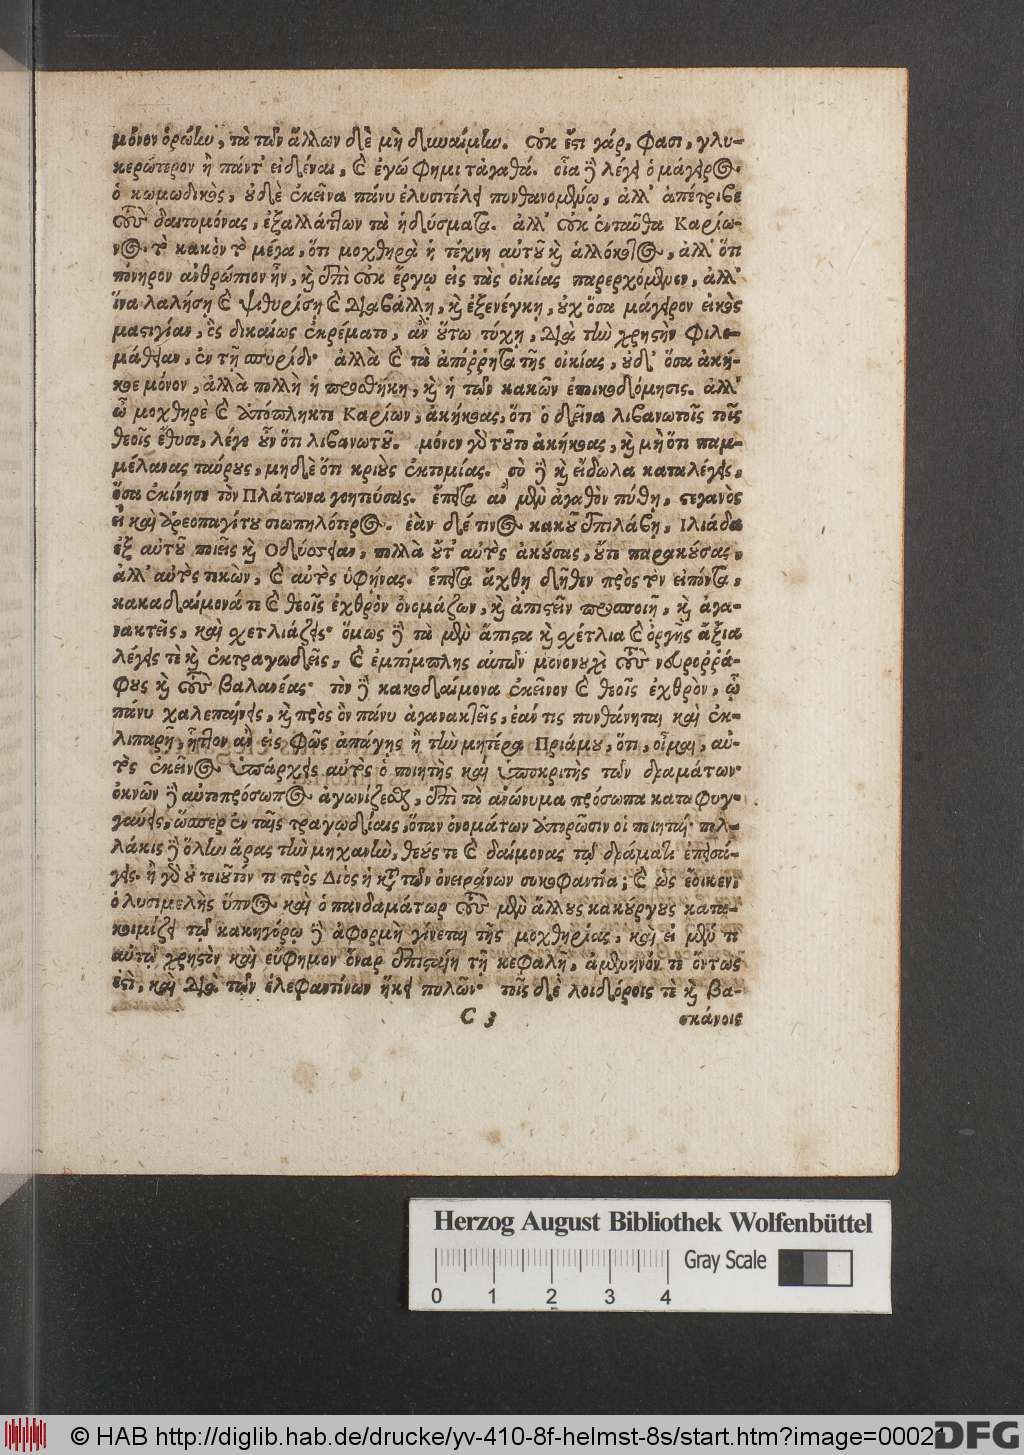 μόνον ὁρῴην, τὰ τῶν ἄλλων δὲ μὴ δυναίμην. Οὐκ ἔστι γάρ, φασι, γλυ-
κερώτερον ἢ πάντ' εἰδέναι, καὶ ἐγώ φημι τἀγαθά. οἷα δὲ λέγει ὁ μάγειρος
ὁ κωμωδικὸς, οὐδὲ ἐκεῖνα πάνυ ἐλυσιτέλει πυνθανομένῳ, ἀλλ' ἀπέτριβε
τοὺς δαιτυμόνας, ἐξαλλάττων τὰ ἡδύσματα. ἀλλ' οὐκ ἐνταῦθα Καρίω-
νος τὸ κακὸν τὸ μέγα, ὅτι μοχθηρὰ ἡ τέχνη αὐτοῦ καὶ ἀλλόκοτος, ἀλλ' ὅτι
πόνηρον ἀνθρώπιον ἦν, καὶ ἐπὶ οὐκ ἔργῳ εἰς τὰς οἰκίας παρερχόμενον, ἀλλ'
ἵνα λαλήσῃ καὶ ψιθυρίσῃ καὶ διαβάλλῃ, καὶ ἐξενέγκῃ, οὐχ ὅσα μάγειρον εἰκὸς
μαστιγίαν, ὃς δικαίως ἐκρέματο, ἂν οὕτω τύχῃ, διὰ τὴν χρηστὴν Φιλε-
μάθιαν, ἐν τῇ σπυρίδι· ἀλλὰ καὶ τὰ ἀπόρρητα τῆς οἰκίας, οὐδ' ὅσα ἀκή-
κοε μόνον, ἀλλὰ πολλὴ ἡ προσθήκη, καὶ ἡ τῶν κακῶν ἐποικοδόμησις. ἀλλ'
ὦ μοχθηρὲ καὶ ἀπόπληκτε Καρίων, ἀκήκοας, ὅτι ὁ δεῖνα λιβανωτοῖς τοῖς
θεοῖς ἔθυσε, λέγε οὖν ὅτι λιβανωτοῦ. μόνον γὰρ τοῦτο ἀκήκοας, καὶ μὴ ὅτι παμ-
μέλανας ταύρους, μηδὲ ὅτι κριοὺς ἐκτομίας. σὺ δὲ καὶ εἴδωλα καταλέγεις,
ὅσα ἐκίνησε τὸν Πλάτωνα γοητεύσας. ἔπειτα ἂν μὲν ἀγαθὸν πύθῃ, στεγανὸς
εἶ καὶ ἀρεοπαγίτου σιωπηλότερος. ἐὰν δέ τινος κακοῦ ἐπιλάβῃ, Ιλιάδα
ἐξ αὐτοῦ ποιεῖς καὶ Οδύσσειαν, πολλὰ οὔτ' αὐτὸς ἀκούσας, οὔτε παρακούσας,
ἀλλ' αὐτὸς τεκὼν, καὶ αὐτὸς ὑφήνας. ἔπειτα ἄχθῃ δῆθεν πρὸς τὸν εἰπόντα,
κακοδαίμονά τε καὶ θεοῖς ἐχθρὸν ὀνομάζων, καὶ ἀπιστεῖν προσποιῇ, καὶ ἀγα-
νακτεῖς, καὶ σχετλιάζεις· ὅμως δὲ τὰ μὲν ἄπιστα καὶ σχέτλια καὶ ὀργῆς ἄξια
λέγεις τὲ καὶ ἐκτραγωδεῖς, καὶ ἐμπίμπλης αὐτῶν μονονουχὶ τοὺς νευρορρά-
φους καὶ τοὺς βαλανέας· τὸν δὲ κακοδαίμονα ἐκεῖνον καὶ θεοῖς ἐχθρὸν, ᾧ
πάνυ χαλεπαίνεις, καὶ πρὸς ὃν πάνυ ἀγανακτεῖς, ἐάν τις πυνθάνηται καὶ ἐκ-
λιπαρῇ, ἧττον ἂν εἰς φῶς ἀπάγῃς ἢ τὴν μητέρα Πριάμου, ὅτι, οἶμαι, αὐ-
τὸς ἐκεῖνος ὑπάρχεις αὐτὸς ὁ ποιητὴς καὶ ὑποκριτὴς τῶν δραμάτων·
ὀκνῶν δὲ αὐτοπρόσωπος ἀγωνίζεσθαι, ἐπὶ τὰ ἀνώνυμα πρόσωπα καταφυγ-
γαύεις, ὥσπερ ἐν ταῖς τραγῳδίαις, ὅταν ὀνομάτων ἀπορῶσιν οἱ ποιηταί· πολ-
λάκις δὲ ὅλην ἄρας τὴν μηχανὴν, θεούς τε καὶ δαίμονας τῷ δράματι ἐπεισά-
γεις. ἢ γὰρ οὐ τοιοῦτόν τι πρὸς Διὸς ἡ κατὰ τῶν ὀνειράτων συκοφαντία; καὶ ὡς ἔοικεν,
ὁ λυσιμελὴς ὕπνος καὶ ὁ πανδαμάτωρ τοὺς μὲν ἄλλους κακούργους κατα-
κοιμίζει τῷ κακηγόρῳ δὲ ἀφορμὴ γίνεται τῆς μοχθηρίας, καὶ εἰ μέν τι
αὐτῷ χρηστὸν καὶ εὔφημον ὄναρ ἐπισταίη τῇ κεφαλῇ, ἀμενηνόν τε ὄντως
ἐστὶ, καὶ διὰ τῶν ἐλεφαντίνων ἥκει πυλῶν· τοῖς δὲ λοιδόροις τὲ καὶ βα-
C 3 σκάνοις
Herzog August Bibliothek Wolfenbüttel
Gray Scale
0 1 2 3 4
© HAB http://diglib.hab.de/drucke/yv-410-8f-helmst-8s/start.htm?image=00021
DFG